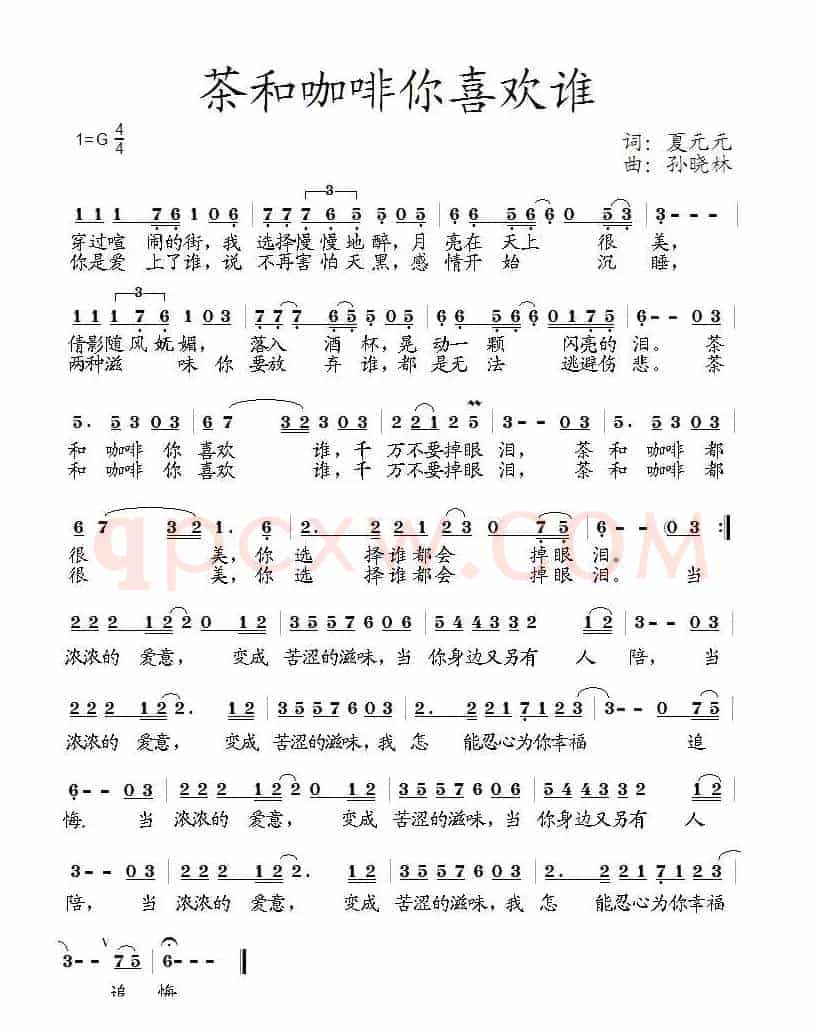 茶和咖啡你喜欢谁
1=G 4/4
词：夏元元
曲：孙晓林
1 1 1 7 6 1 0 6 | 7 7 7 7 6 5 5 0 5 | 6 6 5 6 6 0 5 3 | 3 - - - |
穿过喧 闹的街，我 选择慢慢地醉，月 亮在 天上 很 美，
你是爱 上了谁，说 不再害怕天黑，感 情开 始 沉 睡，
1 1 1 7 6 6 1 0 3 | 7 7 7 6 5 5 0 5 | 6 6 5 6 6 0 1 7 5 | 6 - - 0 3 |
倩影随风妩媚， 落入 酒 杯，晃 动一 颗 闪亮的 泪。 茶
两种滋 味 你 要放 弃 谁，都 是无 法 逃避伤 悲。 茶
5. 5 3 0 3 | 6 7 3 2 3 0 3 | 2 2 1 2 5 | 3 - - 0 3 | 5. 5 3 0 3 |
和 咖啡 你 喜欢 谁，千 万不要掉眼 泪， 茶 和 咖啡 都
和 咖啡 你 喜欢 谁，千 万不要掉眼 泪， 茶 和 咖啡 都
6 7 3 2 | 1. 6 | 2. 2 2 1 2 3 0 7 5 | 6 - - 0 3 :||
qpcxw.COM
很 美，你 选 择谁都会 掉眼 泪。
很 美，你 选 择谁都会 掉眼 泪。 当
2 2 2 1 2 2 0 1 2 | 3 5 5 7 6 0 6 | 5 4 4 3 3 2 1 2 | 3 - - 0 3 |
浓浓的 爱意， 变成 苦涩的滋味，当 你身边又另有 人 陪， 当
2 2 2 1 2 2. 1 2 | 3 5 5 7 6 0 3 | 2. 2 2 1 7 1 2 3 | 3 - - 0 7 5 |
浓浓的 爱意， 变成 苦涩的滋味，我 怎 能忍心为你幸福 追
6 - - 0 3 | 2 2 2 1 2 2 0 1 2 | 3 5 5 7 6 0 6 | 5 4 4 3 3 2 1 2 |
悔. 当 浓浓的 爱意， 变成 苦涩的滋味，当 你身边又另有 人
3 - - 0 3 | 2 2 2 1 2 2. 1 2 | 3 5 5 7 6 0 3 | 2. 2 2 1 7 1 2 3 |
陪， 当 浓浓的 爱意， 变成 苦涩的滋味，我 怎 能忍心为你幸福
3 - - 7 5 | 6 - - - ||
追 悔